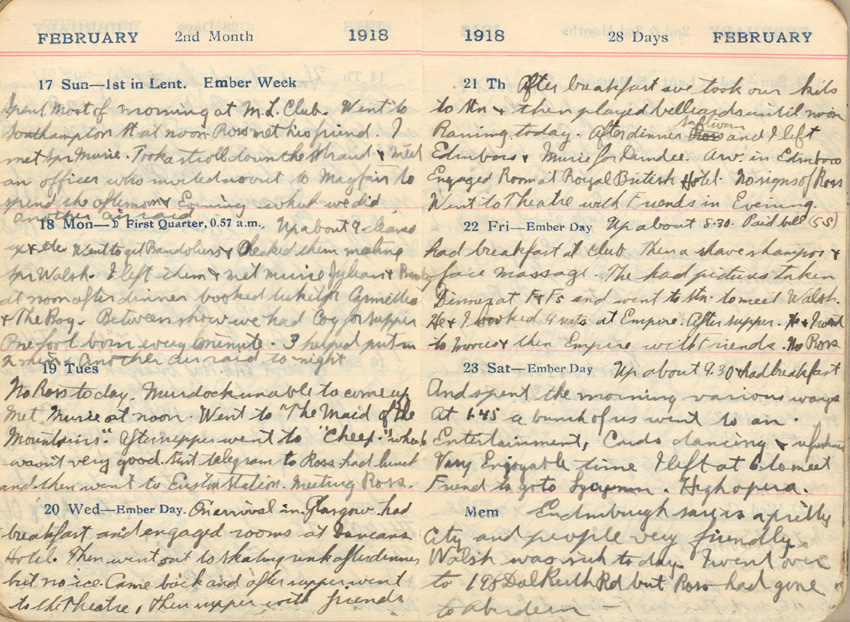 FEBRUARY 2nd Month 1918
17 Sun—1st in Lent. Ember Week
Spent most of morning at M.L. Club. Went to
Southampton St at noon Ross met his friend. I
met Murie. Took a stroll down the Strand & met
an officer who invited us out to Mayfair to
spend the afternoon & Evening so what we did
another air raid
18 Mon—☽ First Quarter, 0.57 a.m., Up about 9 cleans
up & etc Went to get Bandoliers & Checked them meeting
Walsh. I left them & met Murie Julian &
at noon after dinner booked ticket for
& The Boy. Between show we had for supper
One foot born every minute. 3 helped put in
2 Another air raid to night
19 Tues
No Ross today. Murdock unable to come up
Met Murie at noon. Went to "The Maid of the
Mountains". After supper went to "Cheep" which
wasn't very good. Sent telegram to Ross had lunch
and then went to Euston Station. Meeting Ross.
20 Wed—Ember Day. On arrival in Glasgow had
breakfast and engaged rooms at Duncans
Hotel. Then went out to skating rink after dinner
but no ice. Came back and after supper went
to the Theatre, then supper with friends
1918 28 Days FEBRUARY
21 Th After breakfast we took our kits
to Stn & then played billiards until noon
Raining today. After dinner Ross and I left
Edmboro & Murie for Dundee. Arr. in Edinboro
Engaged Room at Royal British Hotel. No signs of Ross
Went to Theatre with Friends in Evening.
22 Fri—Ember Day Up about 8.30. Paid bill (5-5)
had breakfast at club. Then a shave shampoo &
face massage. The had pictures taken
Dining at F&Fs and went to Stn. to meet Walsh.
He & I booked 4 seats at Empire. After supper. He & I went
to & then Empire with friends. No Ross
23 Sat—Ember Day Up about 9.30 & had breakfast
And spent the morning various ways
At 6.45 a bunch of us went to an
Entertainment, Cards dancing & refreshments
Very Enjoyable time I left at 6. to meet
Friend to go to Lyceum. High opera.
Mem Endinburgh sure is a pretty
City and people very friendly.
Walsh was sick to day. I went over
to 198 Dalkeith Rd but Ross had gone
to Aberdeen —